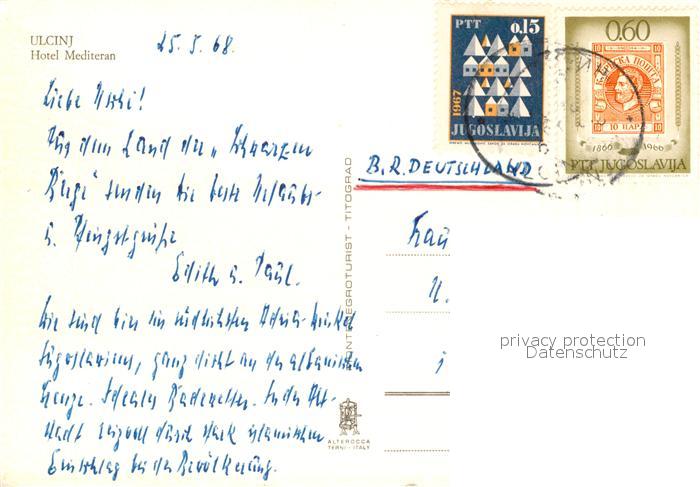 ULCINJ
Hotel Mediteran
25. 5. 68.
Liebe Uschi!
Aus dem Land der „Schwarzen
Berge" senden die beste Urlaubs-
u. Pfingstgrüße
Edith u. Paul.
Wir sind hier im südlichsten Adria-Winkel
Jugoslawiens, ganz dicht an der albanischen
Grenze. Ideales Badewetter. In der Alt-
stadt reizvoll durch stark islamischen
Einschlag bei der Bevölkerung.
MONTENEGROTURIST - TITOGRAD
ALTEROCCA
TERNI - ITALY
PTT 0.15
1967
JUGOSLAVIJA
0.60
10 ПАРЕ
1866 1966
PTT JUGOSLAVIJA
B.R. DEUTSCHLAND
Frau
U.
privacy protection
Datenschutz